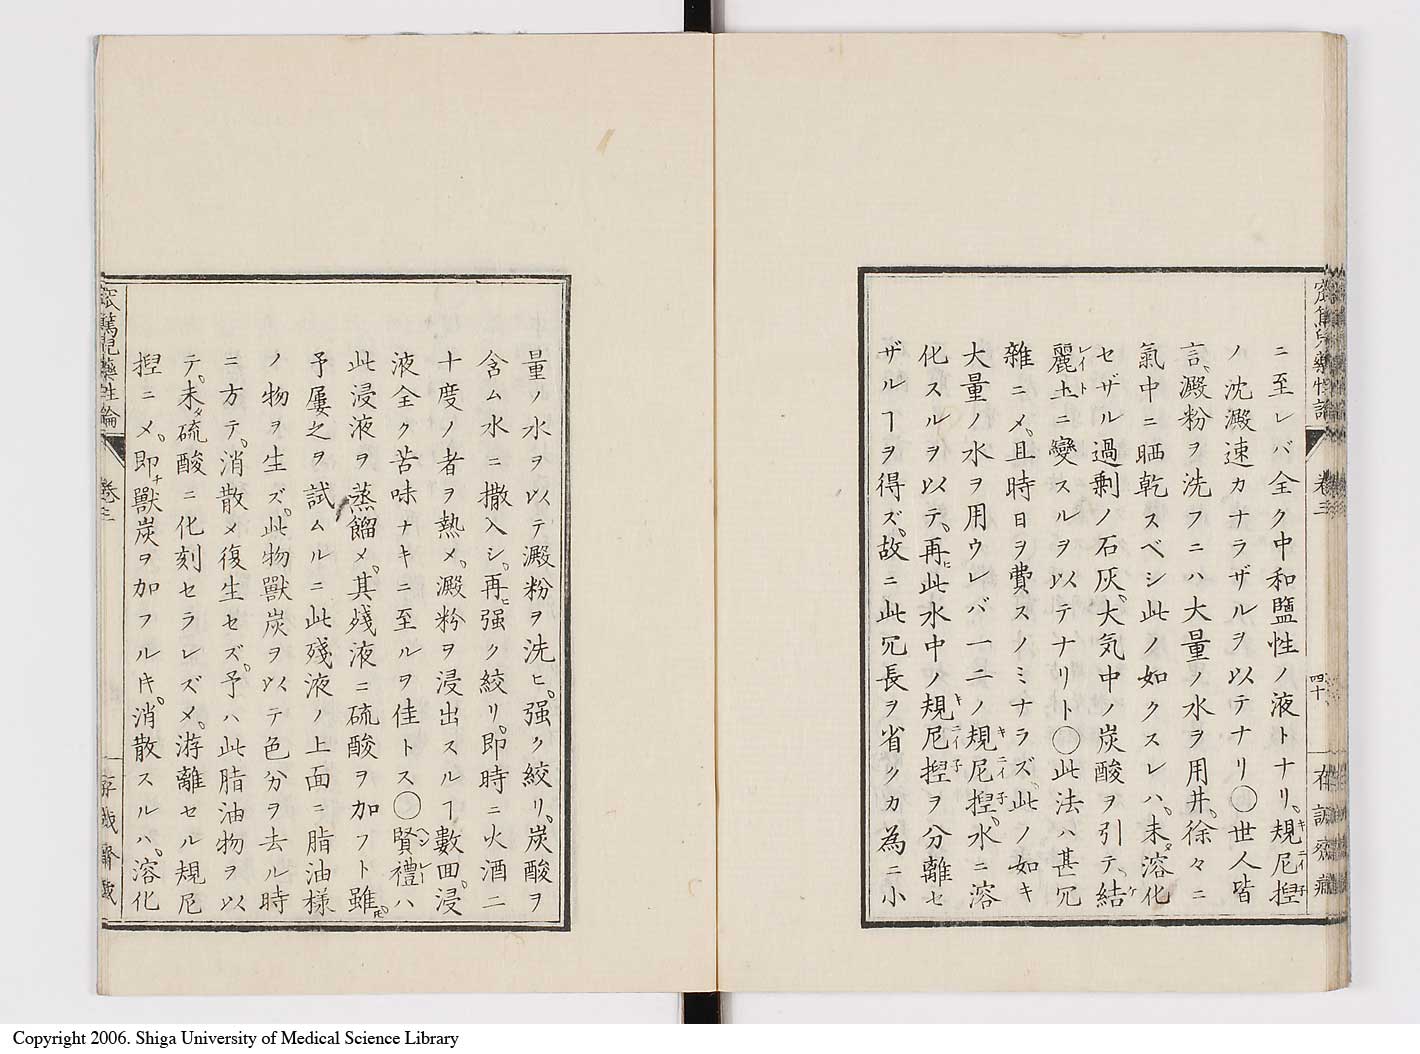 ニ至レバ全ク中和鹽性ノ液トナリ。規尼捏
ノ沈澱速カナラザルヲ以テナリ〇世人皆
言、澱粉ヲ洗フニハ大量ノ水ヲ用井。徐々ニ
氣中ニ晒乾スベシ此ノ如クスレハ。未タ溶化
セザル過剰ノ石灰。大気中ノ炭酸ヲ引テ、結
麗土ニ變スルヲ以テナリト〇此法ハ甚冗
雜ニメ。且時日ヲ費スノミナラズ、此ノ如キ
大量ノ水ヲ用ウレバ一二ノ規尼捏。水ニ溶
化スルヲ以テ。再ヒ此水中ノ規尼捏ヲ分離セ
ザルヿヲ得ズ。故ニ此冗長ヲ省クカ為ニ小
卷三
四十
量ノ水ヲ以テ澱粉ヲ洗ヒ。强ク絞リ。炭酸ヲ
含ム水ニ撒入シ。再ヒ强ク絞リ。即時ニ火酒二
十度ノ者ヲ熱メ。澱粉ヲ浸出スルヿ數回。浸
液全ク苦味ナキニ至ルヲ佳トス〇賢禮ハ
此浸液ヲ蒸餾メ。其殘液ニ硫酸ヲ加フト雖𪜈。
予屢之ヲ試ムルニ此殘液ノ上面ニ脂油樣
ノ物ヲ生ズ。此物獸炭ヲ以テ色分ヲ去ル時
ニ方テ。消散メ復生セズ。予ハ此脂油物ヲ以
テ。未タ硫酸ニ化刻セラレズメ。游離セル規尼
捏ニメ。即チ獸炭ヲ加フル𪜈。消散スルハ。溶化
窊篤児藥性論
卷三
Copyright 2006. Shiga University of Medical Science Library